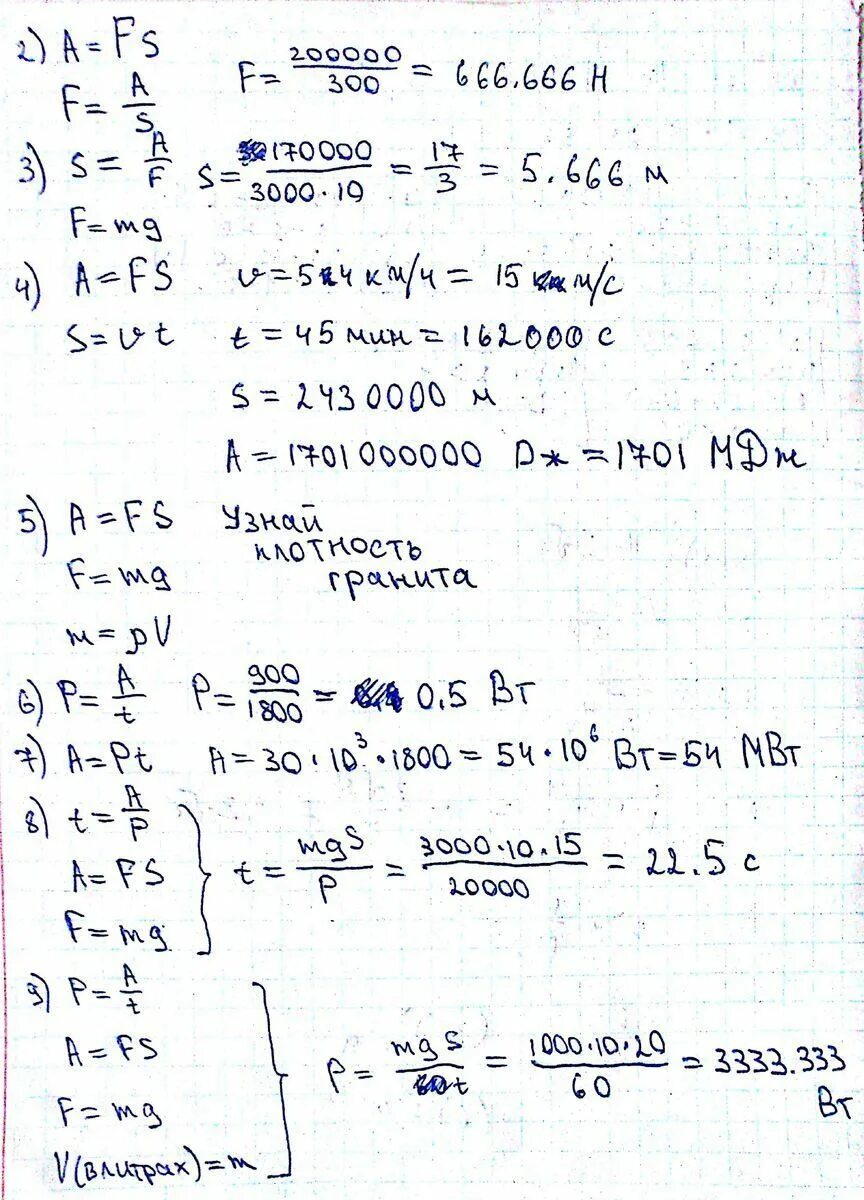 2) A = FS
F = A/S F = 200000/300 = 666.666 Н
3) S = A/F S = 170000/(3000·10) = 17/3 = 5.666 м
F = mg
4) A = FS v = 54 км/ч = 15 м/с
S = vt t = 45 мин = 162000 с
S = 2430000 м
A = 1701000000 Дж = 1701 МДж
5) A = FS Узнай
плотность
F = mg гранита
m = ρV
6) P = A/t P = 900/1800 = 0.5 Вт
7) A = Pt A = 30·10³·1800 = 54·10⁶ Вт = 54 МВт
8) t = A/P
A = FS t = mgS/P = 3000·10·15/20000 = 22.5 с
F = mg
9) P = A/t
A = FS P = mgS/t = 1000·10·20/60 = 3333.333
F = mg Вт
V(в литрах) = m